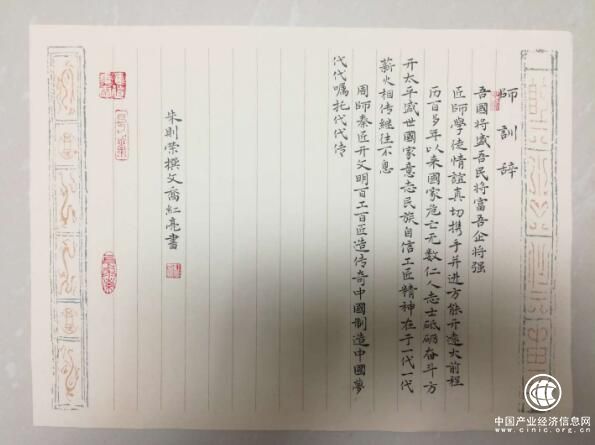 師訓辞
吾國将盛吾民将富吾企将强
匠師學徒情誼真切携手并進方能开遠大前程
历百多年以来國家危亡无數仁人志士砥砺奋斗方
开太平盛世國家意志民族自信工匠精神在于一代一代
薪火相传继往不息
周师秦匠开文明百工百匠造传奇中國制造中國夢
代代嘱托代代传
朱則荣撰文喬紅亮書
中国产业经济信息网
www.cinic.org.cn